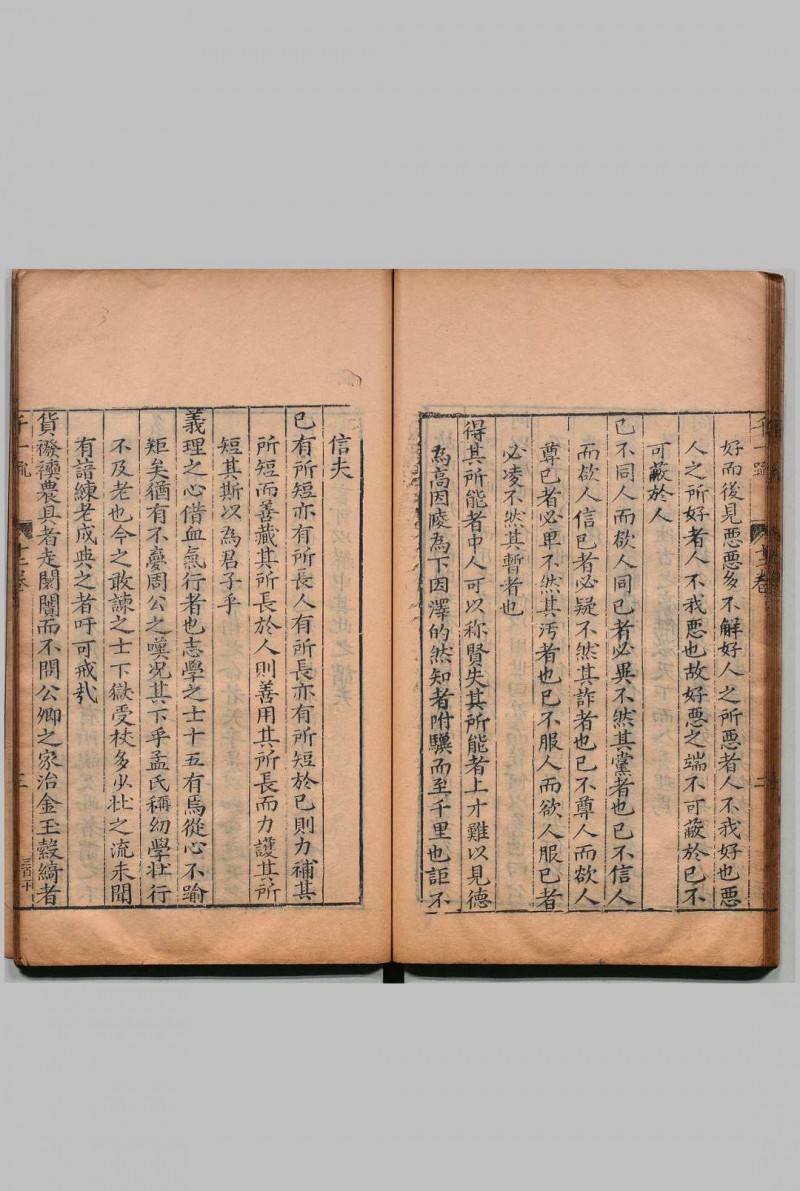 好而後見惡惡多不解好人之所惡者人不我好也惡
人之所好者人不我惡也故好惡之端不可蔽於已不
可蔽於人
已不同人而欲人同已者必異不然其黨者也已不信人
而欲人信已者必疑不然其詐者也已不尊人而欲人
尊已者必卑不然其污者也已不服人而欲人服已者
必凌不然其暫者也
得其所能者中人可以称賢失其所能者上才難以見德
為高因陵為下因澤的然知者附驥而至千里也詎不
信夫
已有所短亦有所長人有所長亦有所短於已則力補其
所短而善藏其所長於人則善用其所長而力護其所
短其斯以為君子乎
義理之心借血氣行者也志學之士十五有焉從心不踰
矩矣猶有不憂周公之嘆况其下乎孟氏稱幼學壯行
不及老也今之敢諫之士下獄受杖多少壯之流未聞
有諳練老成典之者吁可戒㢤
貨襏襫農具者走闤闠而不問公卿之家治金玉縠綺者
千一疏
十二卷
三